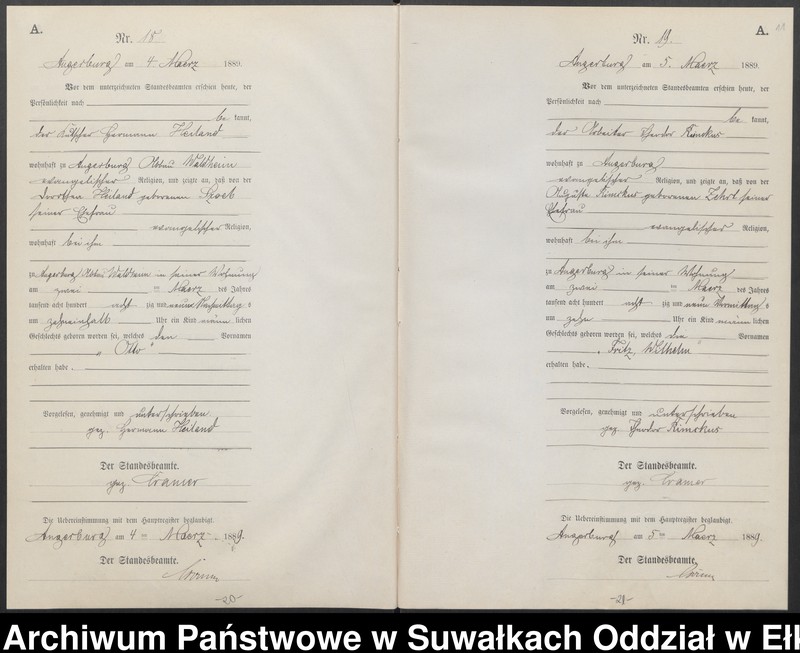 A.
Nr. 18
Angerburg am 4 Maerz 1889.
Vor dem unterzeichneten Standesbeamten erschien heute, der
Persönlichkeit nach
be kannt,
der Kutscher Hermann Heiland
wohnhaft zu Angerburg Abbau Waldheim
evangelischer Religion, und zeigte an, daß von der
Dorothea Heiland geborenen
seiner Ehefrau
evangelischer Religion,
wohnhaft bei ihm
zu Angerburg Abbau in seiner Wohnung
am zwei ten Maerz des Jahres
tausend acht hundert acht zig und neun Nachmittag s
um Uhr ein Kind männ lichen
Geschlechts geboren worden sei, welches den Vornamen
„ Otto "
erhalten habe.
Vorgelesen, genehmigt und unterschrieben
gez. Hermann Heiland
Der Standesbeamte.
gez. Cramer
Die Uebereinstimmung mit dem Hauptregister beglaubigt.
Angerburg am 4 ten Maerz 1889.
Der Standesbeamte.
-20-
A.
Nr. 19.
Angerburg am 5. Maerz 1889.
Vor dem unterzeichneten Standesbeamten erschien heute, der
Persönlichkeit nach
be kannt,
der Arbeiter Theodor Rimskus
wohnhaft zu Angerburg
evangelischer Religion, und zeigte an, daß von der
Auguste Rimskus geborenen seiner
Ehefrau
evangelischer Religion,
wohnhaft bei ihm
zu Angerburg in seiner Wohnung
am zwei ten Maerz des Jahres
tausend acht hundert acht zig und neun Vormittag s
um zehn Uhr ein Kind männ lichen
Geschlechts geboren worden sei, welches die Vornamen
„ Fritz Wilhelm "
erhalten habe.
Vorgelesen, genehmigt und unterschrieben
gez Theodor Rimskus
Der Standesbeamte.
gez. Cramer
Die Uebereinstimmung mit dem Hauptregister beglaubigt.
Angerburg am 5 ten Maerz 1889.
Der Standesbeamte.
-21-
Archiwum Państwowe w Suwałkach Oddział w Ełk